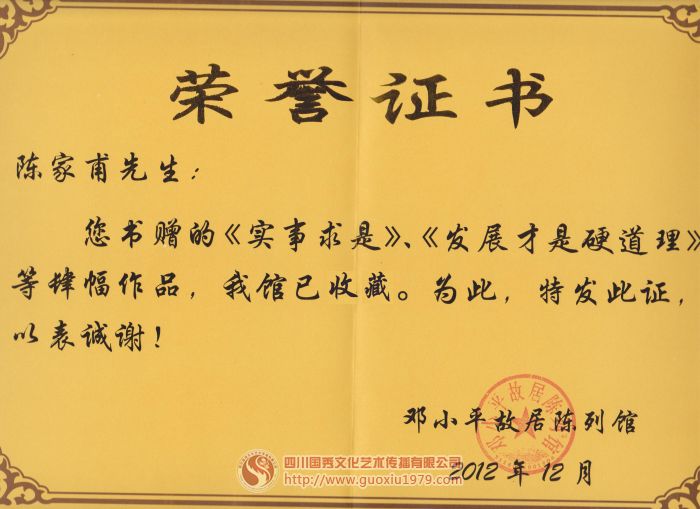 荣誉证书
陈家甫先生：
您书赠的《实事求是》、《发展才是硬道理》
等肆幅作品，我馆已收藏。为此，特发此证，
以表诚谢！
邓小平故居陈列馆
邓小平故居陈列馆
2012 年 12 月
四川国秀文化艺术传播有限公司
http://www.guoxiu1979.com